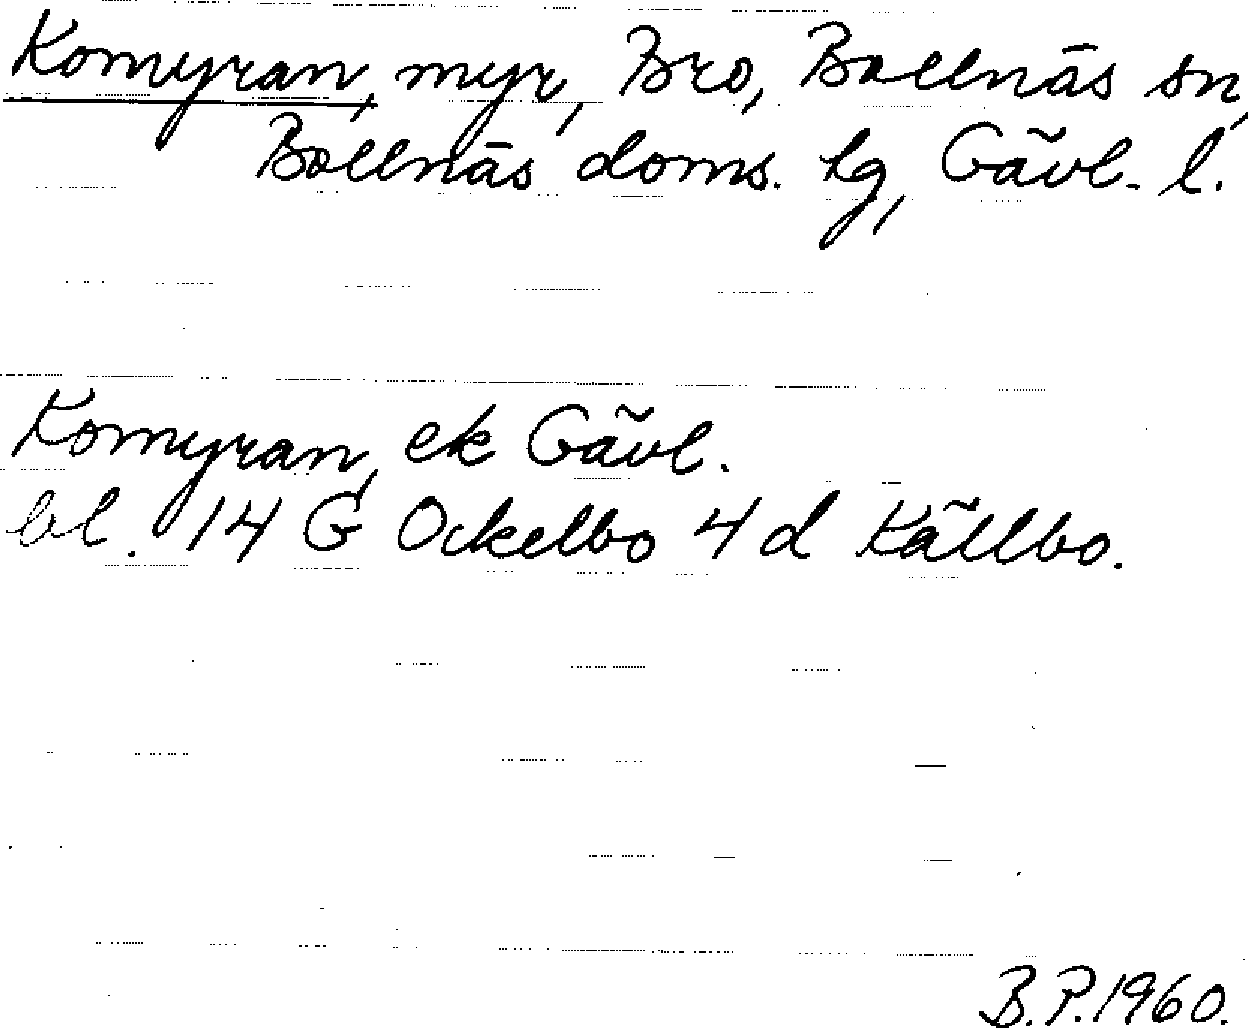 Komyran, myr, Bro, Bollnäs sn,
Bollnäs doms. lg, Gävl. l.
Komyran, ek Gävl.
bl. 14 G Ockelbo 4 d Källbo.
B.P. 1960.